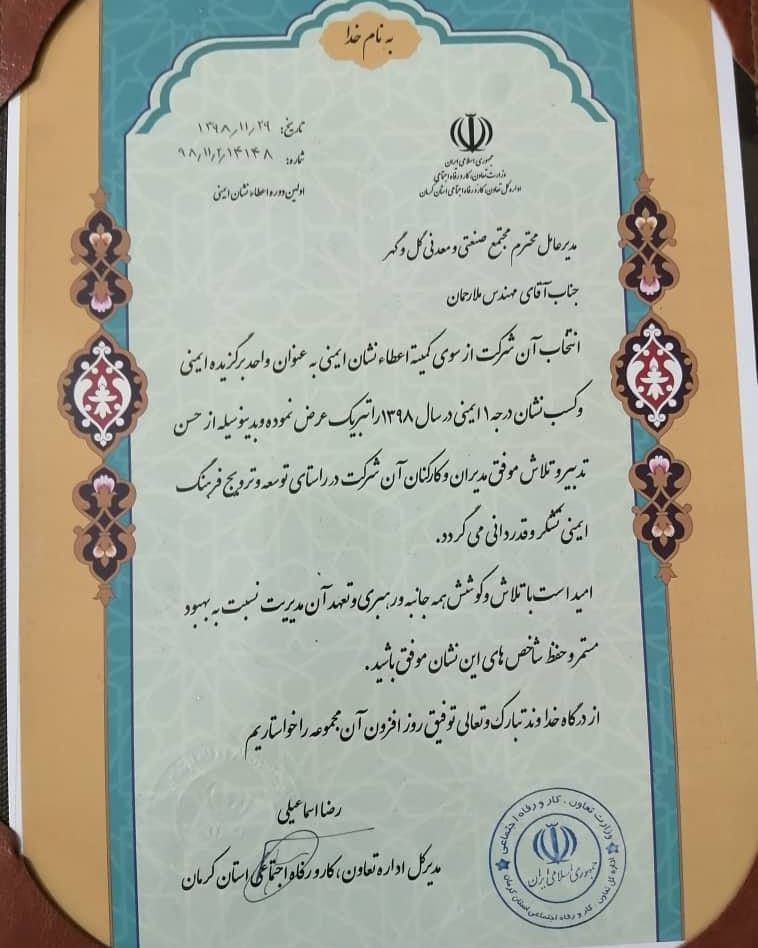 به نام خدا
جمهوری اسلامی ایران
وزارت تعاون، کار و رفاه اجتماعی
اداره کل تعاون، کار و رفاه اجتماعی استان کرمان
تاریخ: ۱۳۹۸/۱۱/۲۹
شماره: ۹۸/۱۱/۲/۱۴۱۴۸
اولین دوره اعطاء نشان ایمنی
مدیرعامل محترم مجتمع صنعتی و معدنی گل و گهر
جناب آقای مهندس ملارحمان
انتخاب آن شرکت از سوی کمیته اعطاء نشان ایمنی به عنوان واحد برگزیده ایمنی
و کسب نشان درجه ۱ ایمنی در سال ۱۳۹۸ را تبریک عرض نموده و بدینوسیله از حسن
تدبیر و تلاش موفق مدیران و کارکنان آن شرکت در راستای توسعه و ترویج فرهنگ
ایمنی تشکر و قدردانی می گردد.
امید است با تلاش و کوشش همه جانبه و رهبری و تعهد آن مدیریت نسبت به بهبود
مستمر و حفظ شاخص های این نشان موفق باشید.
از درگاه خداوند تبارک و تعالی توفیق روز افزون آن مجموعه را خواستاریم
رضا اسماعیلی
مدیرکل اداره تعاون، کار و رفاه اجتماعی استان کرمان
وزارت تعاون، کار و رفاه اجتماعی
جمهوری اسلامی ایران
اداره کل تعاون، کار و رفاه اجتماعی استان کرمان